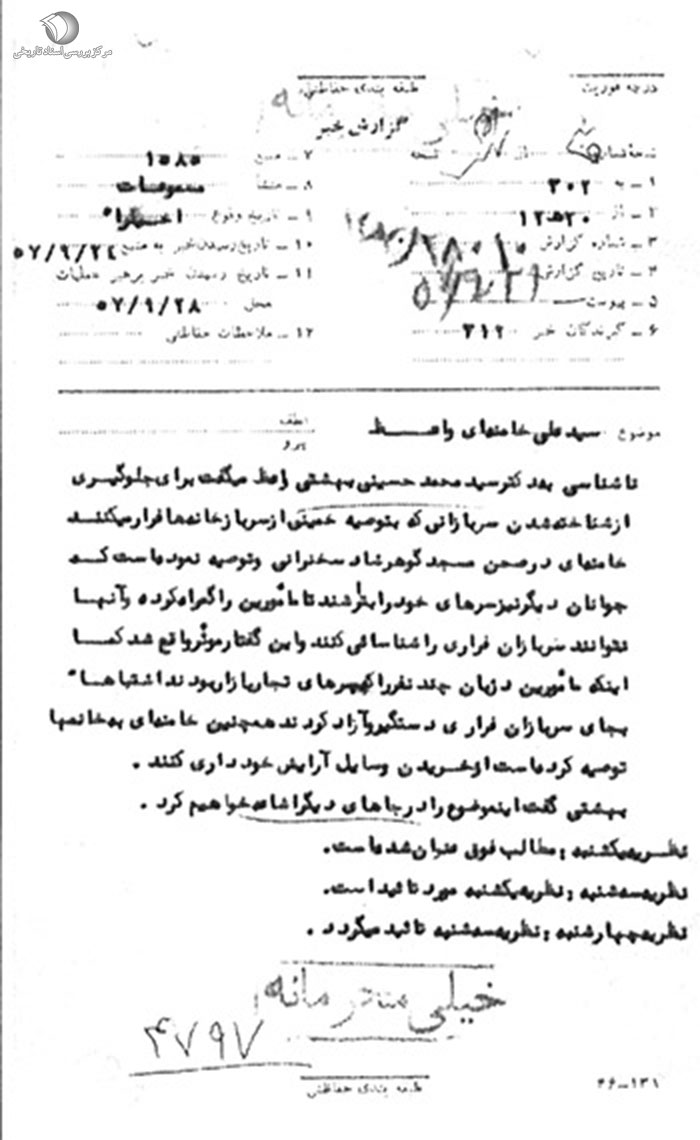 مرکز بررسی اسناد تاریخی
درجه فوریت
طبقه بندی حفاظتی
گزارش خبر
نسخه شماره از نسخه
۱ ـ به ۳۰۲
۲ ـ از ۱۲هـ۲۰
۳ ـ شماره گزارش
۴ ـ تاریخ گزارش
۵ ـ پیوست
۶ ـ گیرندگان خبر ۳۱۲
۷ ـ منبع ۱۵۸۵
۸ ـ منشأ مسموعات
۹ ـ تاریخ وقوع اخیراً
۱۰ ـ تاریخ رسیدن خبر به منبع ۵۷/۹/۲۴
۱۱ ـ تاریخ رسیدن خبر برهبر عملیات
محل ۵۷/۹/۲۸
۱۲ ـ ملاحظات حفاظتی
موضوع سیدعلی خامنه‌ای واعظ
عطف
پیرو
ناشناسی به دکترسید محمد حسینی بهشتی واعظ میگفت برای جلوگیری
از شناخته‌شدن سربازانی که بتوصیه خمینی از سربازخانه‌ها فرار میکنند
خامنه‌ای در صحن مسجد گوهرشاد سخنرانی وتوصیه نموده‌است که
جوانان دیگر نیز سرهای خود را بتراشند تا مأمورین را گمراه کرده وآنها
نتوانند سربازان فراری را شناسائی کنند واین گفتار موثر واقع شد کما
اینکه مأمورین درژیان چند نفر را که پسرهای تجار بازار بودند اشتباهاً
بجای سربازان فراری دستگیر وآزاد کردند همچنین خامنه‌ای به خانمها
توصیه کرده‌است از خریدن وسایل آرایش خودداری کنند .
بهشتی گفت اینموضوع را در جاهای دیگر اشاعه خواهیم کرد .
نظریه‌یکشنبه : مطالب فوق عنوان شده‌است.
نظریه‌سه‌شنبه : نظریه‌یکشنبه مورد تائید است.
نظریه‌چهارشنبه : نظریه‌سه‌شنبه تائید میگردد .
خیلی محرمانه
۴۷۹۷
طبقه بندی حفاظتی
۴۶ـ۱۳۱